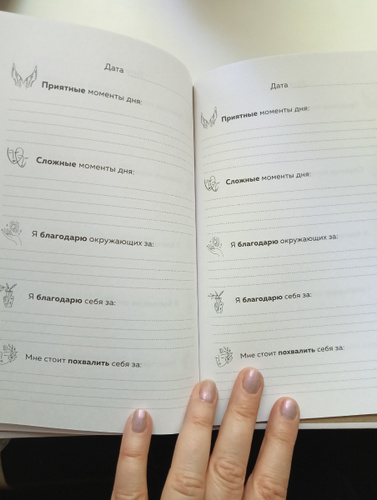 Дата
Приятные моменты дня:
Сложные моменты дня:
Я благодарю окружающих за:
Я благодарю себя за:
Мне стоит похвалить себя за:
Дата
Приятные моменты дня:
Сложные моменты дня:
Я благодарю окружающих за:
Я благодарю себя за:
Мне стоит похвалить себя за: